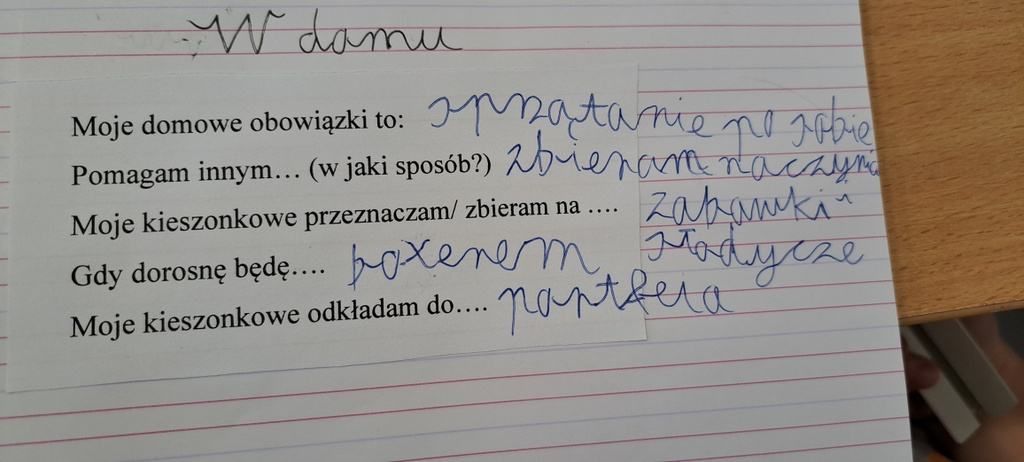 W domu
Moje domowe obowiązki to: sprzątanie po sobie
Pomagam innym... (w jaki sposób?) zbieram naczynia
Moje kieszonkowe przeznaczam/ zbieram na .... zabawki i
słodycze
Gdy dorosnę będę.... boxerem
Moje kieszonkowe odkładam do.... portfela